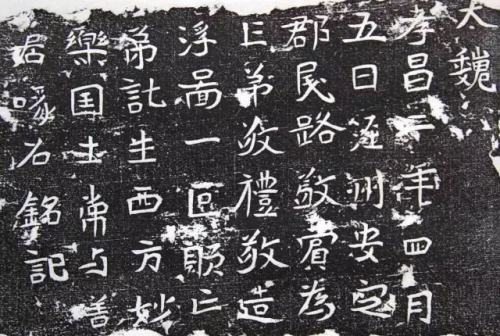 太魏
孝昌年四月
五日涇州安定
郡民路敬賓為
亡弟敬禮敬造
浮啚一區願亡
弟託生西方妙
樂国土常与善
居石銘記